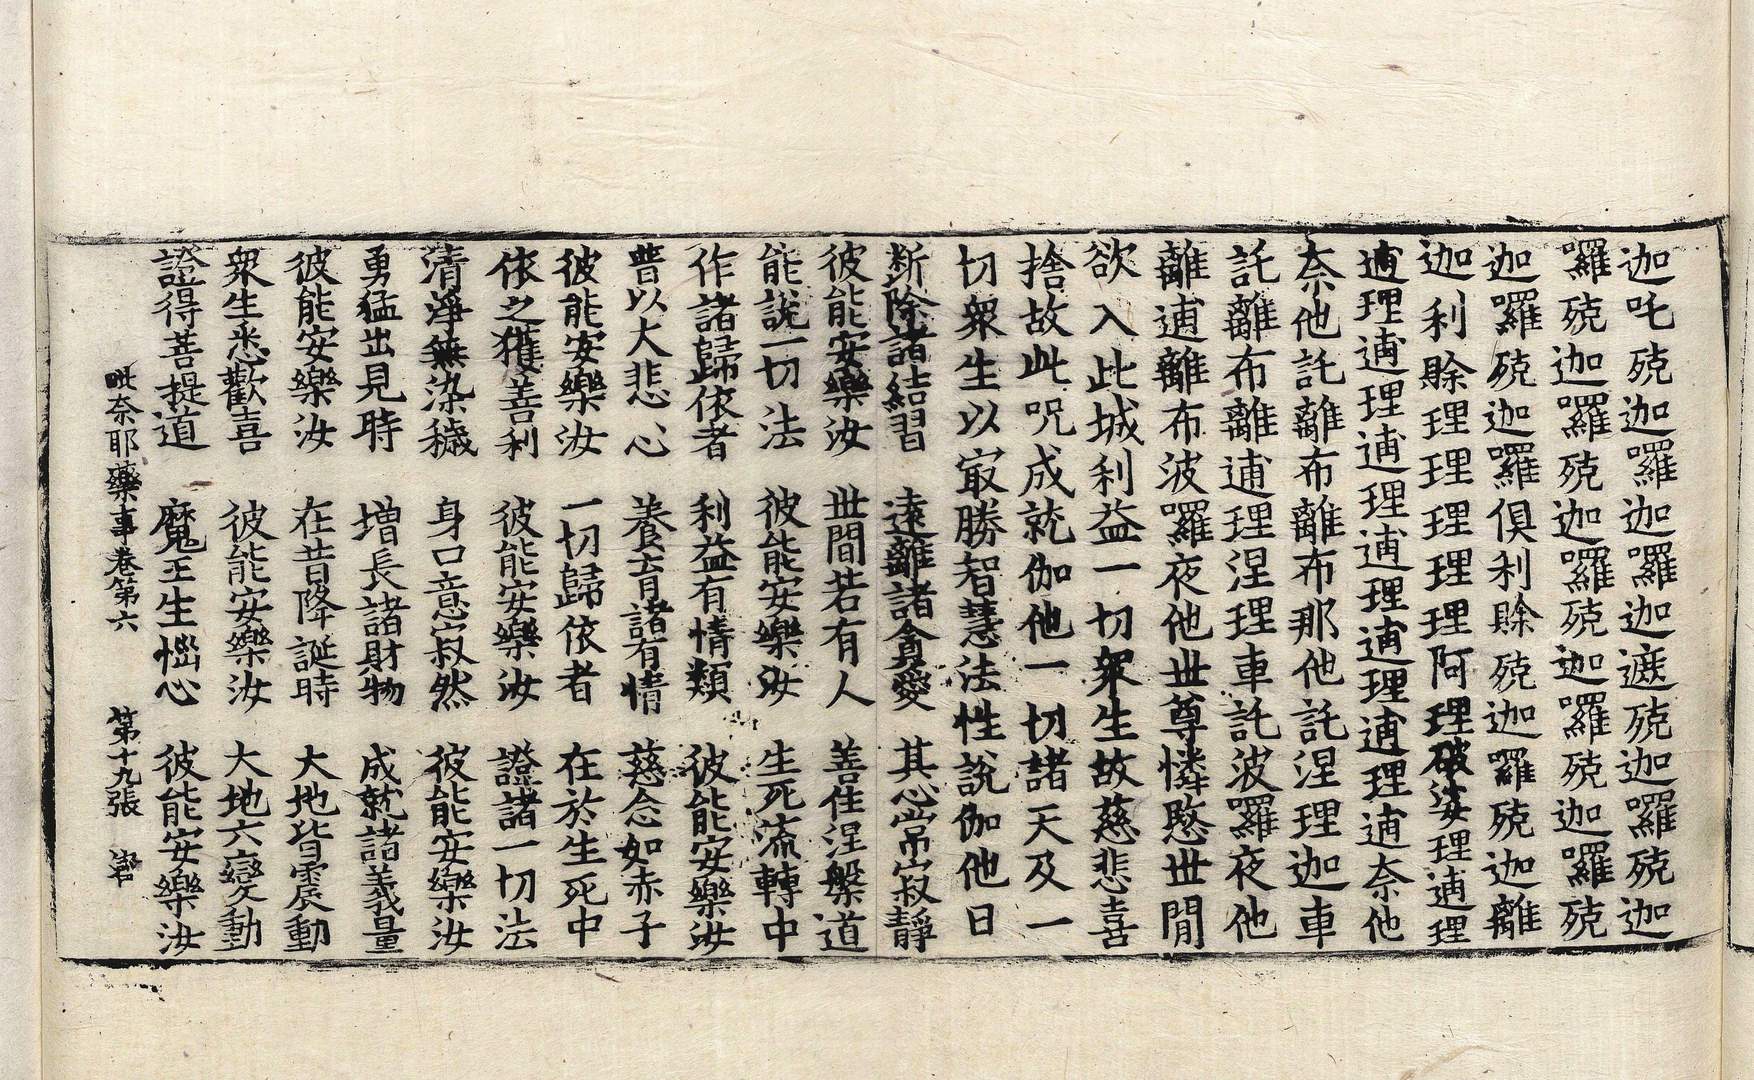 迦吒殑迦囉迦囉迦遮殑迦囉殑迦
囉殑迦囉殑迦囉殑迦囉殑迦囉殑
迦囉殑迦囉俱利賖殑迦囉殑迦離
迦利賖理理理理理阿理破婆理逋理
逋理逋理逋理逋理逋理逋理逋奈他
奈他託離布離布那他託涅理迦車
託離布離逋理涅理車託波囉夜他
離逋離布波囉夜他世尊憐愍世間
欲入此城利益一切衆生故慈悲喜
捨故此呪成就伽他一切諸天及一
切衆生以㝡勝智慧法性說伽他曰
斷除諸結習　遠離諸貪愛　其心常寂靜
彼能安樂汝　世間若有人　善住涅槃道
能說一切法　彼能安樂汝　生死流轉中
作諸歸依者　利益有情類　彼能安樂汝
普以大悲心　養育諸有情　慈念如赤子
彼能安樂汝　一切歸依者　在於生死中
依之獲善利　彼能安樂汝　證諸一切法
清淨無染穢　身口意寂然　彼能安樂汝
勇猛出見時　增長諸財物　成就諸義量
彼能安樂汝　在昔降誕時　大地皆震動
衆生悉歡喜　彼能安樂汝　大地六變動
證得菩提道　魔王生惱心　彼能安樂汝
毗奈耶藥事卷第六　第十九張